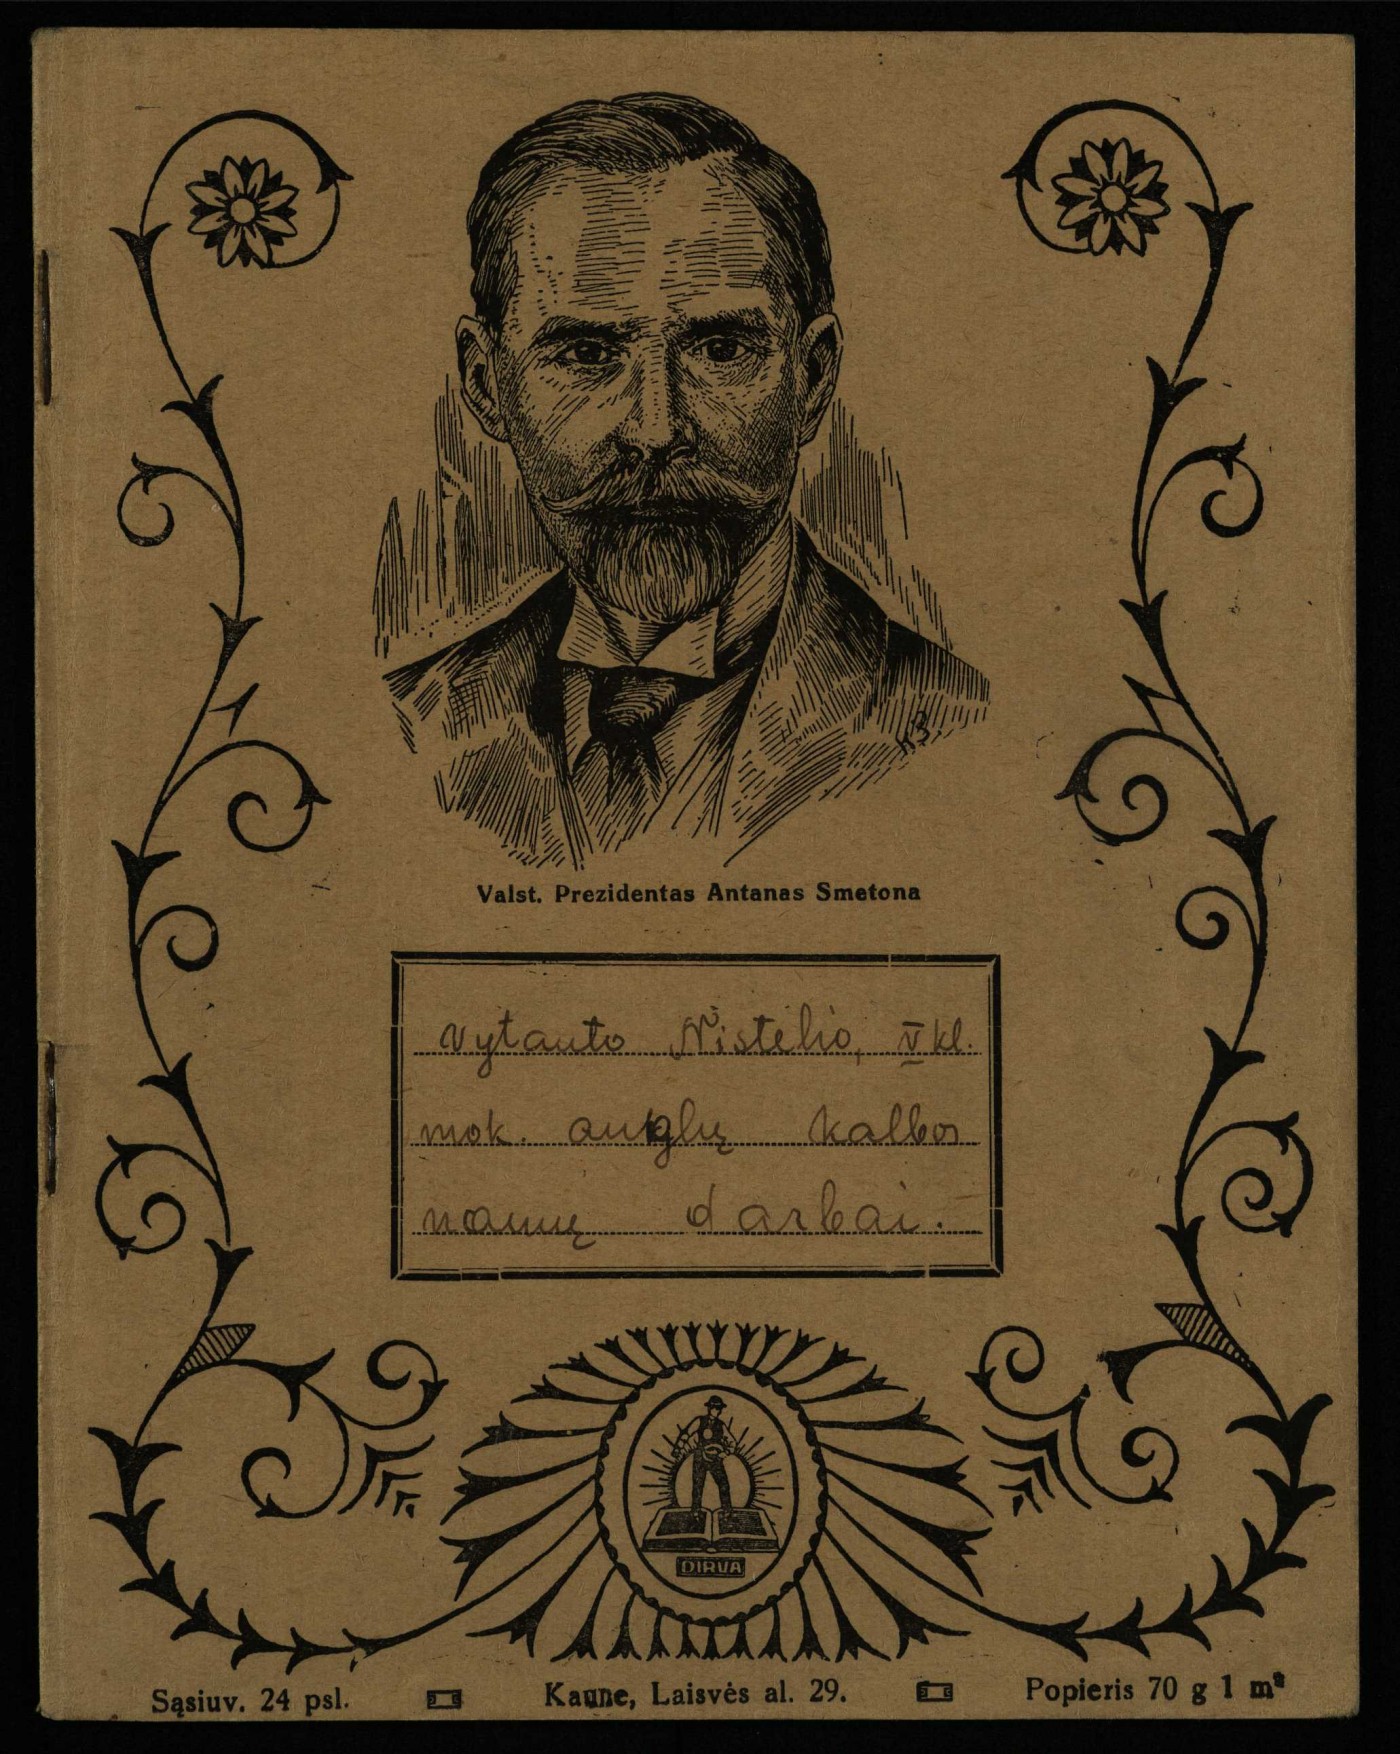 Valst. Prezidentas Antanas Smetona
Vytauto Nistelio, V kl.
mok. anglų kalbos
namų darbai.
DIRVA
Sąsiuv. 24 psl. Kaune, Laisvės al. 29. Popieris 70 g 1 m²